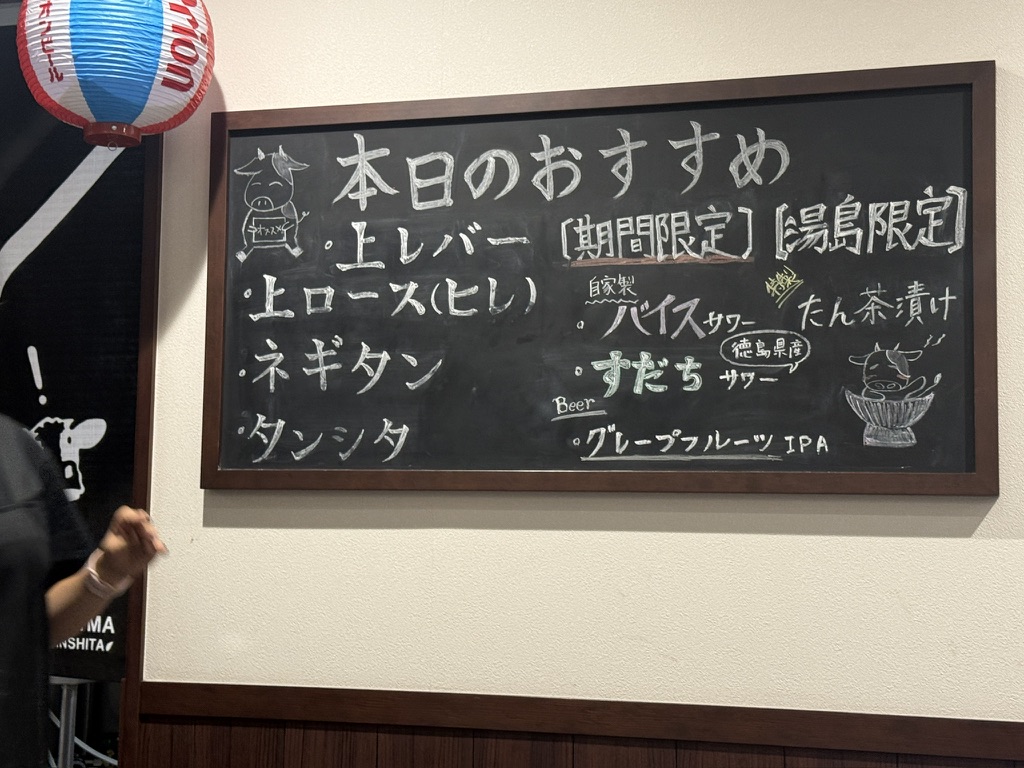 本日のおすすめ
オススメ
・上レバー
・上ロース(ヒレ)
・ネギタン
・タンシタ
[期間限定]
自家製
・バイスサワー
徳島県産
・すだちサワー
Beer
・グレープフルーツIPA
[湯島限定]
たん茶漬け
rion
オンビール
!
MA
NSHITA